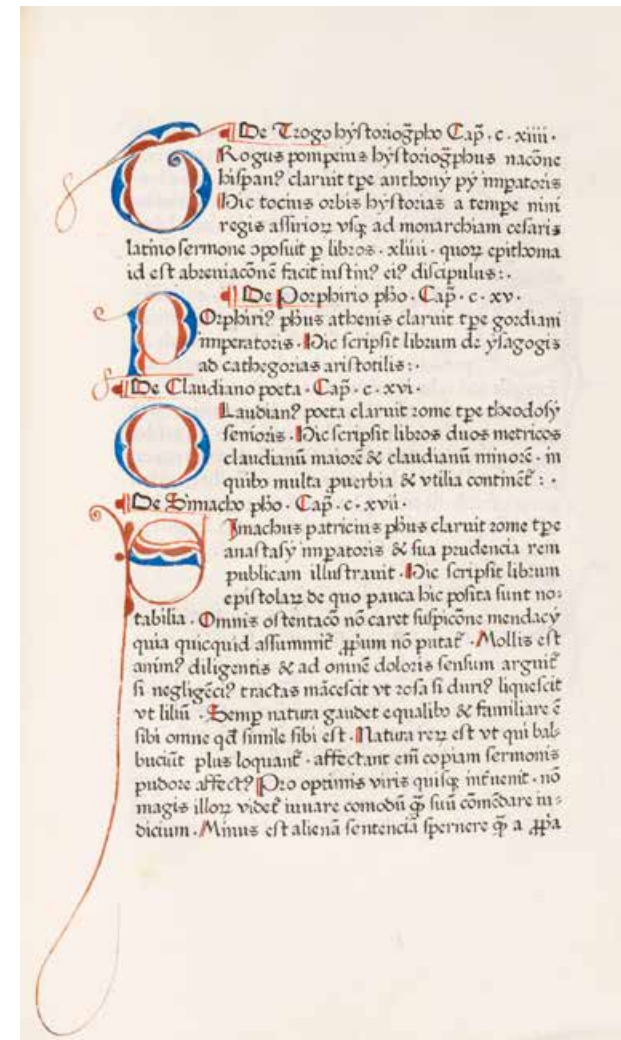 ¶ De Trogo hystoriog̃pho Cap̃ . c . xiiii .
TRogus pompeius hystoriog̃phus nacõne
hispanꝰ claruit tp̃e anthony py imꝑatoris
Hic tocius orbis hystorias a temꝑe nini
regis assirioꝝ vsqꝫ ad monarchiam cesaris
latino sermone ꝯposuit ꝑ libros . xliiii . quoꝝ epithoma
id est abreuiacõnẽ facit iustinꝰ eiꝰ discipulus : .
¶ De Porphirio ph̃o . Cap̃ . c . xv .
POrphiriꝰ ph̃us athenis claruit tp̃e gordiani
imperatoris . Hic scripsit librum de ysagogis
ad cathegorias aristotilis : .
¶ De Claudiano poeta . Cap̃ . c . xvi .
CLaudianꝰ poeta claruit rome tp̃e theodosy
senioris . Hic scripsit libros duos metricos
claudianũ maiorẽ & claudianũ minorẽ . in
quibꝰ multa ꝓuerbia & vtilia continẽt̃ : .
¶ De Simacho ph̃o . Cap̃ . c . xvii .
SImachus patricius ph̃us claruit rome tp̃e
anastasy imꝑatoris & sua prudencia rem
publicam illustrauit . Hic scripsit librum
epistolaꝝ de quo pauca hic posita sunt no:
tabilia . Omnis ostentacõ nõ caret suspicõne mendacy
quia quicquid assummit̃ ꝓp̃ium nõ putat̃ . Mollis est
animꝰ diligentis & ad omnẽ doloris sensum arguit̃
si negligẽciꝰ tractas mãcescit vt rosa si durꝰ liquescit
vt liliũ . Semꝑ natura gaudet equalibꝰ & familiare ẽ
sibi omne qd̃ simile sibi est . Natura reꝝ est vt qui bal:
buciũt plus loquant̃ . affectant em̃ copiam sermonis
pudore affectꝰ Pro optimis viris quisqꝫ int̃uenit . nõ
magis illoꝝ videt̃ iuuare comodũ q̃ꝫ suũ cõmẽdare iu:
dicium . Minus est alienã sentenciã spernere q̃ꝫ a ꝓp̃a